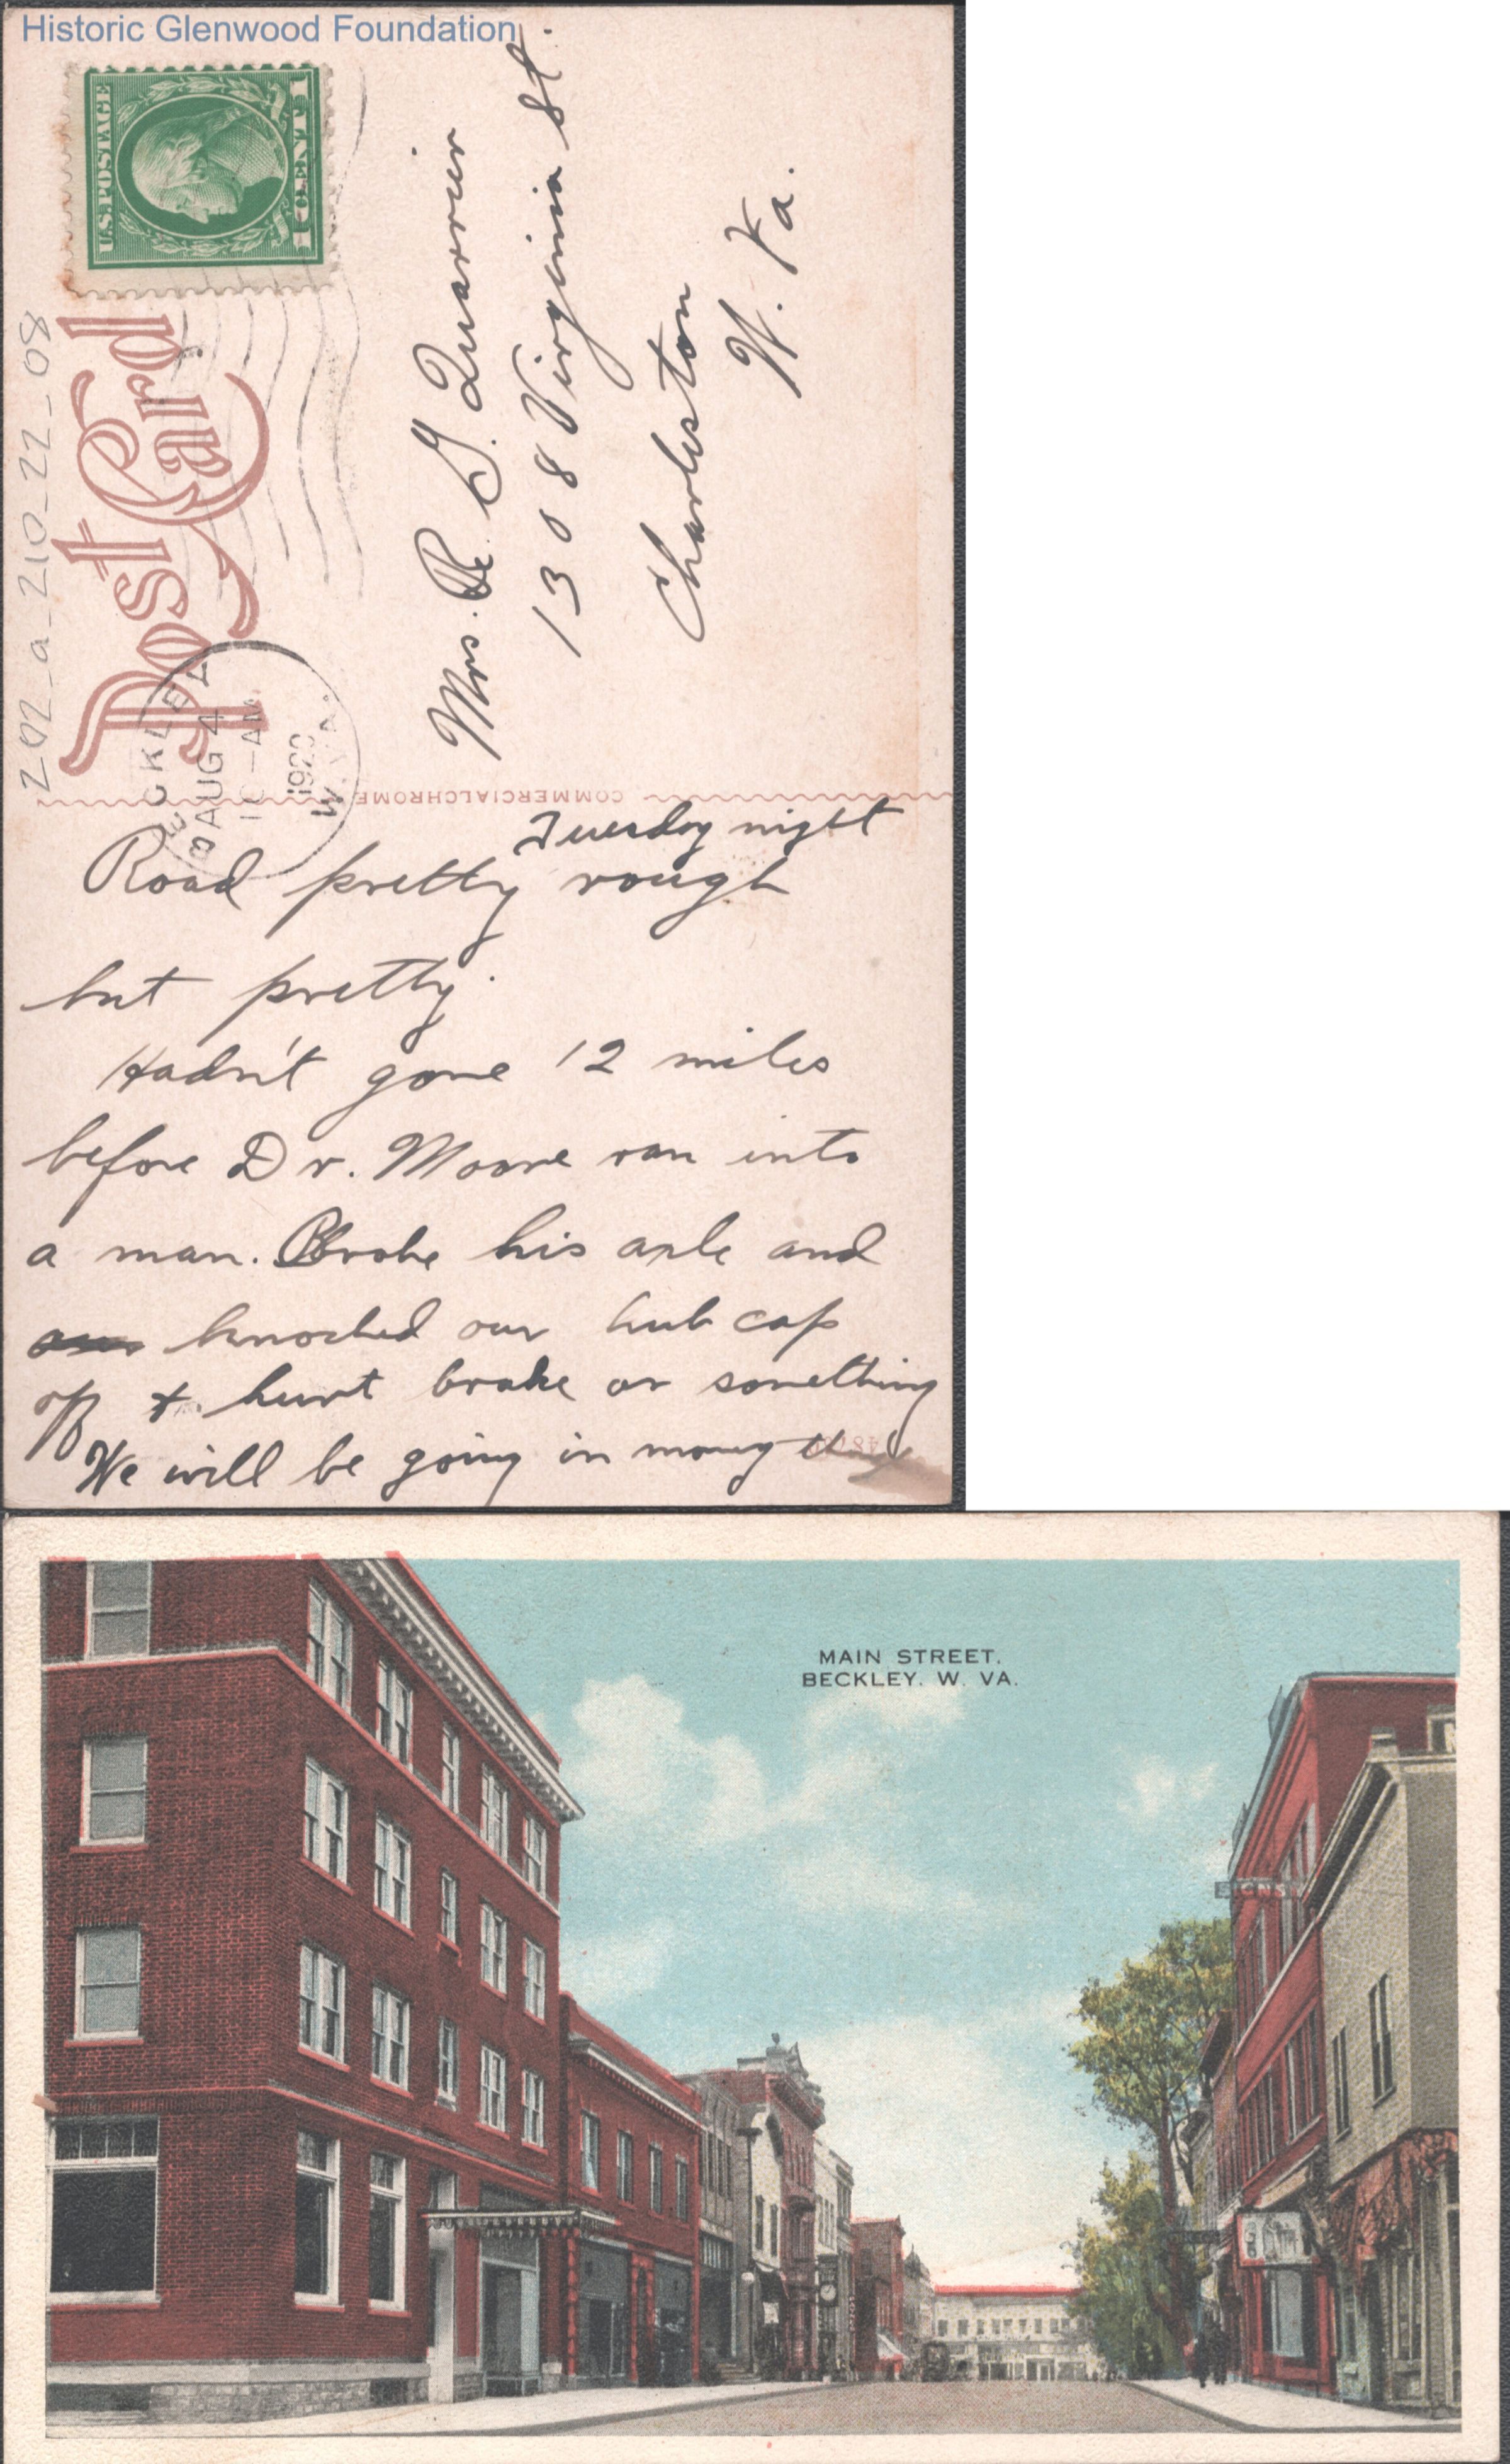 Historic Glenwood Foundation
U.S. POSTAGE
1 CENT 1
202_a_210_22_08
Post Card
BECKLEY
AUG 4
10-AM
1920
W. VA.
Mrs. R. G. Quarrier
1308 Virginia St.
Charleston
W. Va.
COMMERCIALCHROME
Tuesday night
Road pretty rough
but pretty.
Hadn't gone 12 miles
before Dr. Moore ran into
a man. Broke his axle and
knocked our hub cap
off & hurt brake or something
We will be going in
MAIN STREET.
BECKLEY. W. VA.